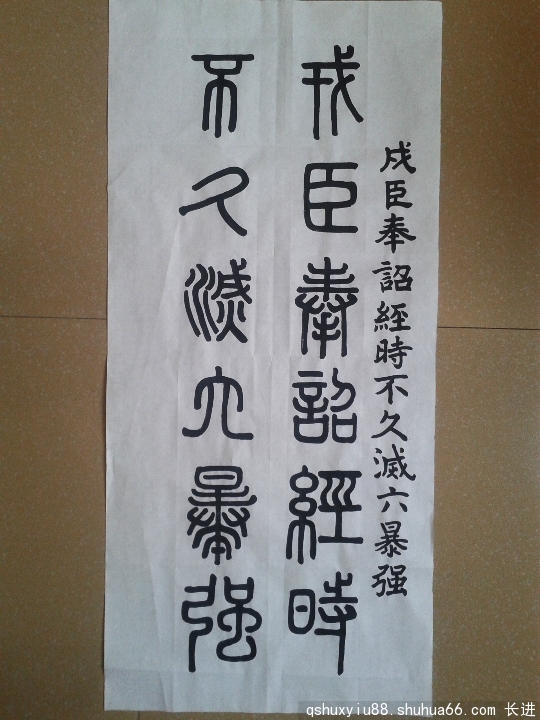 戍臣奉詔經時不久滅六暴强
戎臣奉詔經時
不久滅六暴强
qshuxyiu88.shuhua66.com 长进